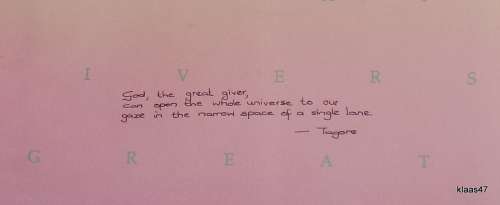 I V E R S
God, the great giver,
can open the whole universe to our
gaze in the narrow space of a single lane.
— Tagore
G R E A T
klaas47